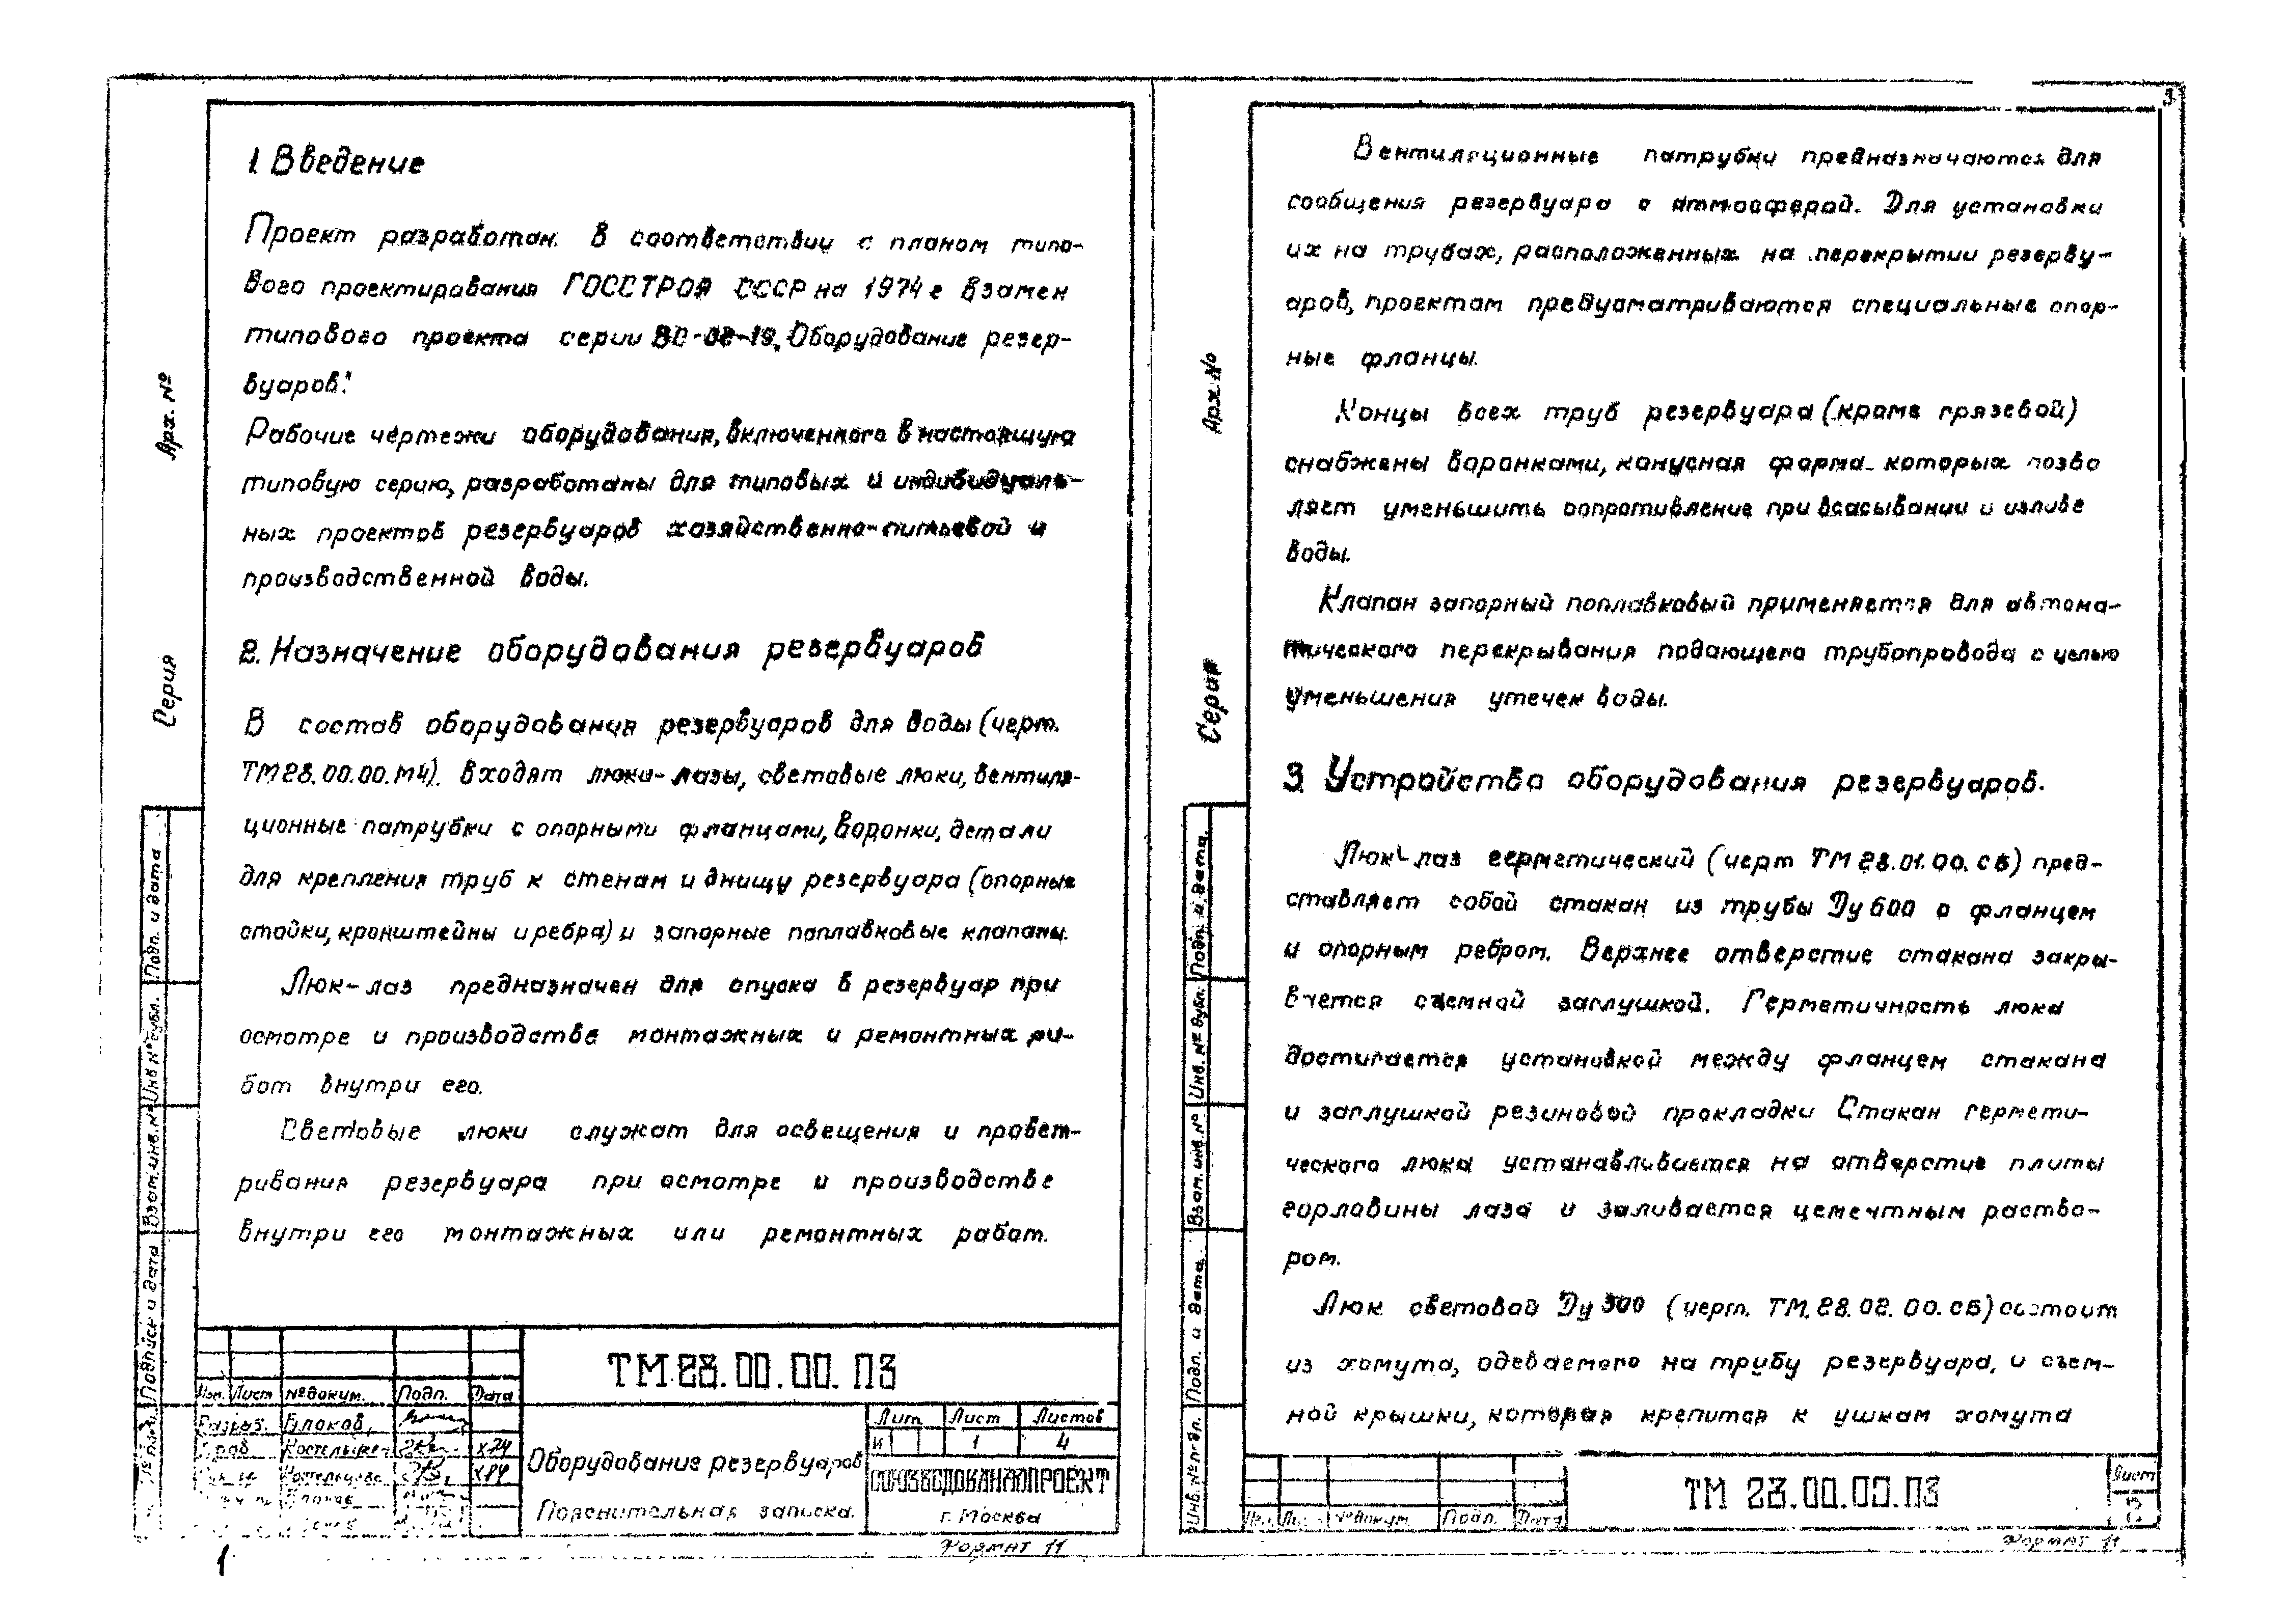 1. Введение
Проект разработан в соответствии с планом типо-
вого проектирования ГОССТРОЯ СССР на 1974 г взамен
типового проекта серии ВС-02-19 „Оборудование резер-
вуаров“.
Рабочие чертежи оборудования, включенного в настоящую
типовую серию, разработаны для типовых и индивидуаль-
ных проектов резервуаров хозяйственно-питьевой и
производственной воды.
2. Назначение оборудования резервуаров
В состав оборудования резервуаров для воды (черт.
ТМ28.00.00.МЧ). входят люки-лазы, световые люки, вентиля-
ционные патрубки с опорными фланцами, воронки, детали
для крепления труб к стенам и днищу резервуара (опорные
стойки, кронштейны и ребра) и запорные поплавковые клапаны.
Люк-лаз предназначен для спуска в резервуар при
осмотре и производстве монтажных и ремонтных ра-
бот внутри его.
Световые люки служат для освещения и провет-
ривания резервуара при осмотре и производстве
внутри его монтажных или ремонтных работ.
Арх. №
Серия
Подп. и дата
Инв. № дубл.
Взам. инв. №
Подпись и дата
Изм. Лист № докум. Подп. Дата
Разраб. Блохов
Пров. X74
X74
ТМ28.00.00.ПЗ
Оборудование резервуаров
Пояснительная записка.
Лит. Лист Листов
И 1 4
СОЮЗВОДОКАНАЛПРОЕКТ
г. Москва
Формат 11
1
3
Вентиляционные патрубки предназначаются для
сообщения резервуара с атмосферой. Для установки
их на трубах, расположенных на перекрытии резерву-
аров, проектом предусматриваются специальные опор-
ные фланцы.
Концы всех труб резервуара (кроме грязевой)
снабжены воронками, конусная форма которых позво
ляет уменьшить сопротивление при всасывании и изливе
воды.
Клапан запорный поплавковый применяется для автома-
тического перекрывания подающего трубопровода с целью
уменьшения утечек воды.
3. Устройство оборудования резервуаров.
Люк-лаз герметический (черт ТМ28.01.00.СБ) пред-
ставляет собой стакан из трубы Ду 600 с фланцем
и опорным ребром. Верхнее отверстие стакана закры-
вается съемной заглушкой. Герметичность люка
достигается установкой между фланцем стакана
и заглушкой резиновой прокладки Стакан гермети-
ческого люка устанавливается на отверстие плиты
горловины лаза и заливается цементным раство-
ром.
Люк световой Ду 300 (черт. ТМ.28.02.00.СБ) состоит
из хомута, одеваемого на трубу резервуара, и съем-
ной крышки, которая крепится к ушкам хомута
Арх. №
Серия
Подп. и дата
Инв. № дубл.
Взам. инв. №
Подп. и дата
Инв. № подл.
Изм. Лист № докум. Подп. Дата
ТМ 28.00.00.ПЗ
Лист
2
Формат 11